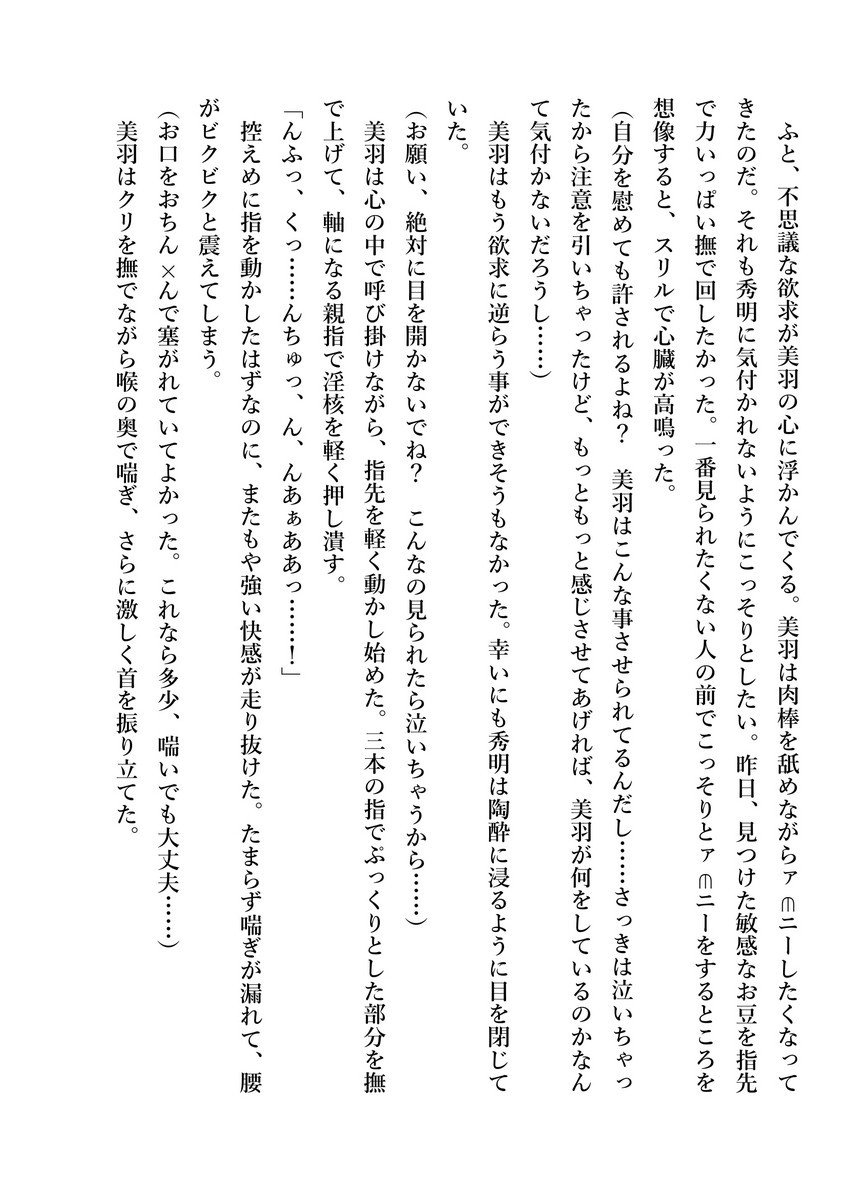 ふと、不思議な欲求が美羽の心に浮かんでくる。美羽は肉棒を舐めながらァ⋒ニーしたくなって
きたのだ。それも秀明に気付かれないようにこっそりとしたい。昨日、見つけた敏感なお豆を指先
で力いっぱい撫で回したかった。一番見られたくない人の前でこっそりとァ⋒ニーをするところを
想像すると、スリルで心臓が高鳴った。
(自分を慰めても許されるよね？　美羽はこんな事させられてるんだし……さっきは泣いちゃっ
たから注意を引いちゃったけど、もっともっと感じさせてあげれば、美羽が何をしているのかなん
て気付かないだろうし……)
美羽はもう欲求に逆らう事ができそうもなかった。幸いにも秀明は陶酔に浸るように目を閉じて
いた。
(お願い、絶対に目を開かないでね？　こんなの見られたら泣いちゃうから……)
美羽は心の中で呼び掛けながら、指先を軽く動かし始めた。三本の指でぷっくりとした部分を撫
で上げて、軸になる親指で淫核を軽く押し潰す。
「んふっ、くっ……んちゅっ、ん、んあぁああっ……！」
控えめに指を動かしたはずなのに、またもや強い快感が走り抜けた。たまらず喘ぎが漏れて、腰
がビクビクと震えてしまう。
(お口をおちん×んで塞がれていてよかった。これなら多少、喘いでも大丈夫……)
美羽はクリを撫でながら喉の奥で喘ぎ、さらに激しく首を振り立てた。